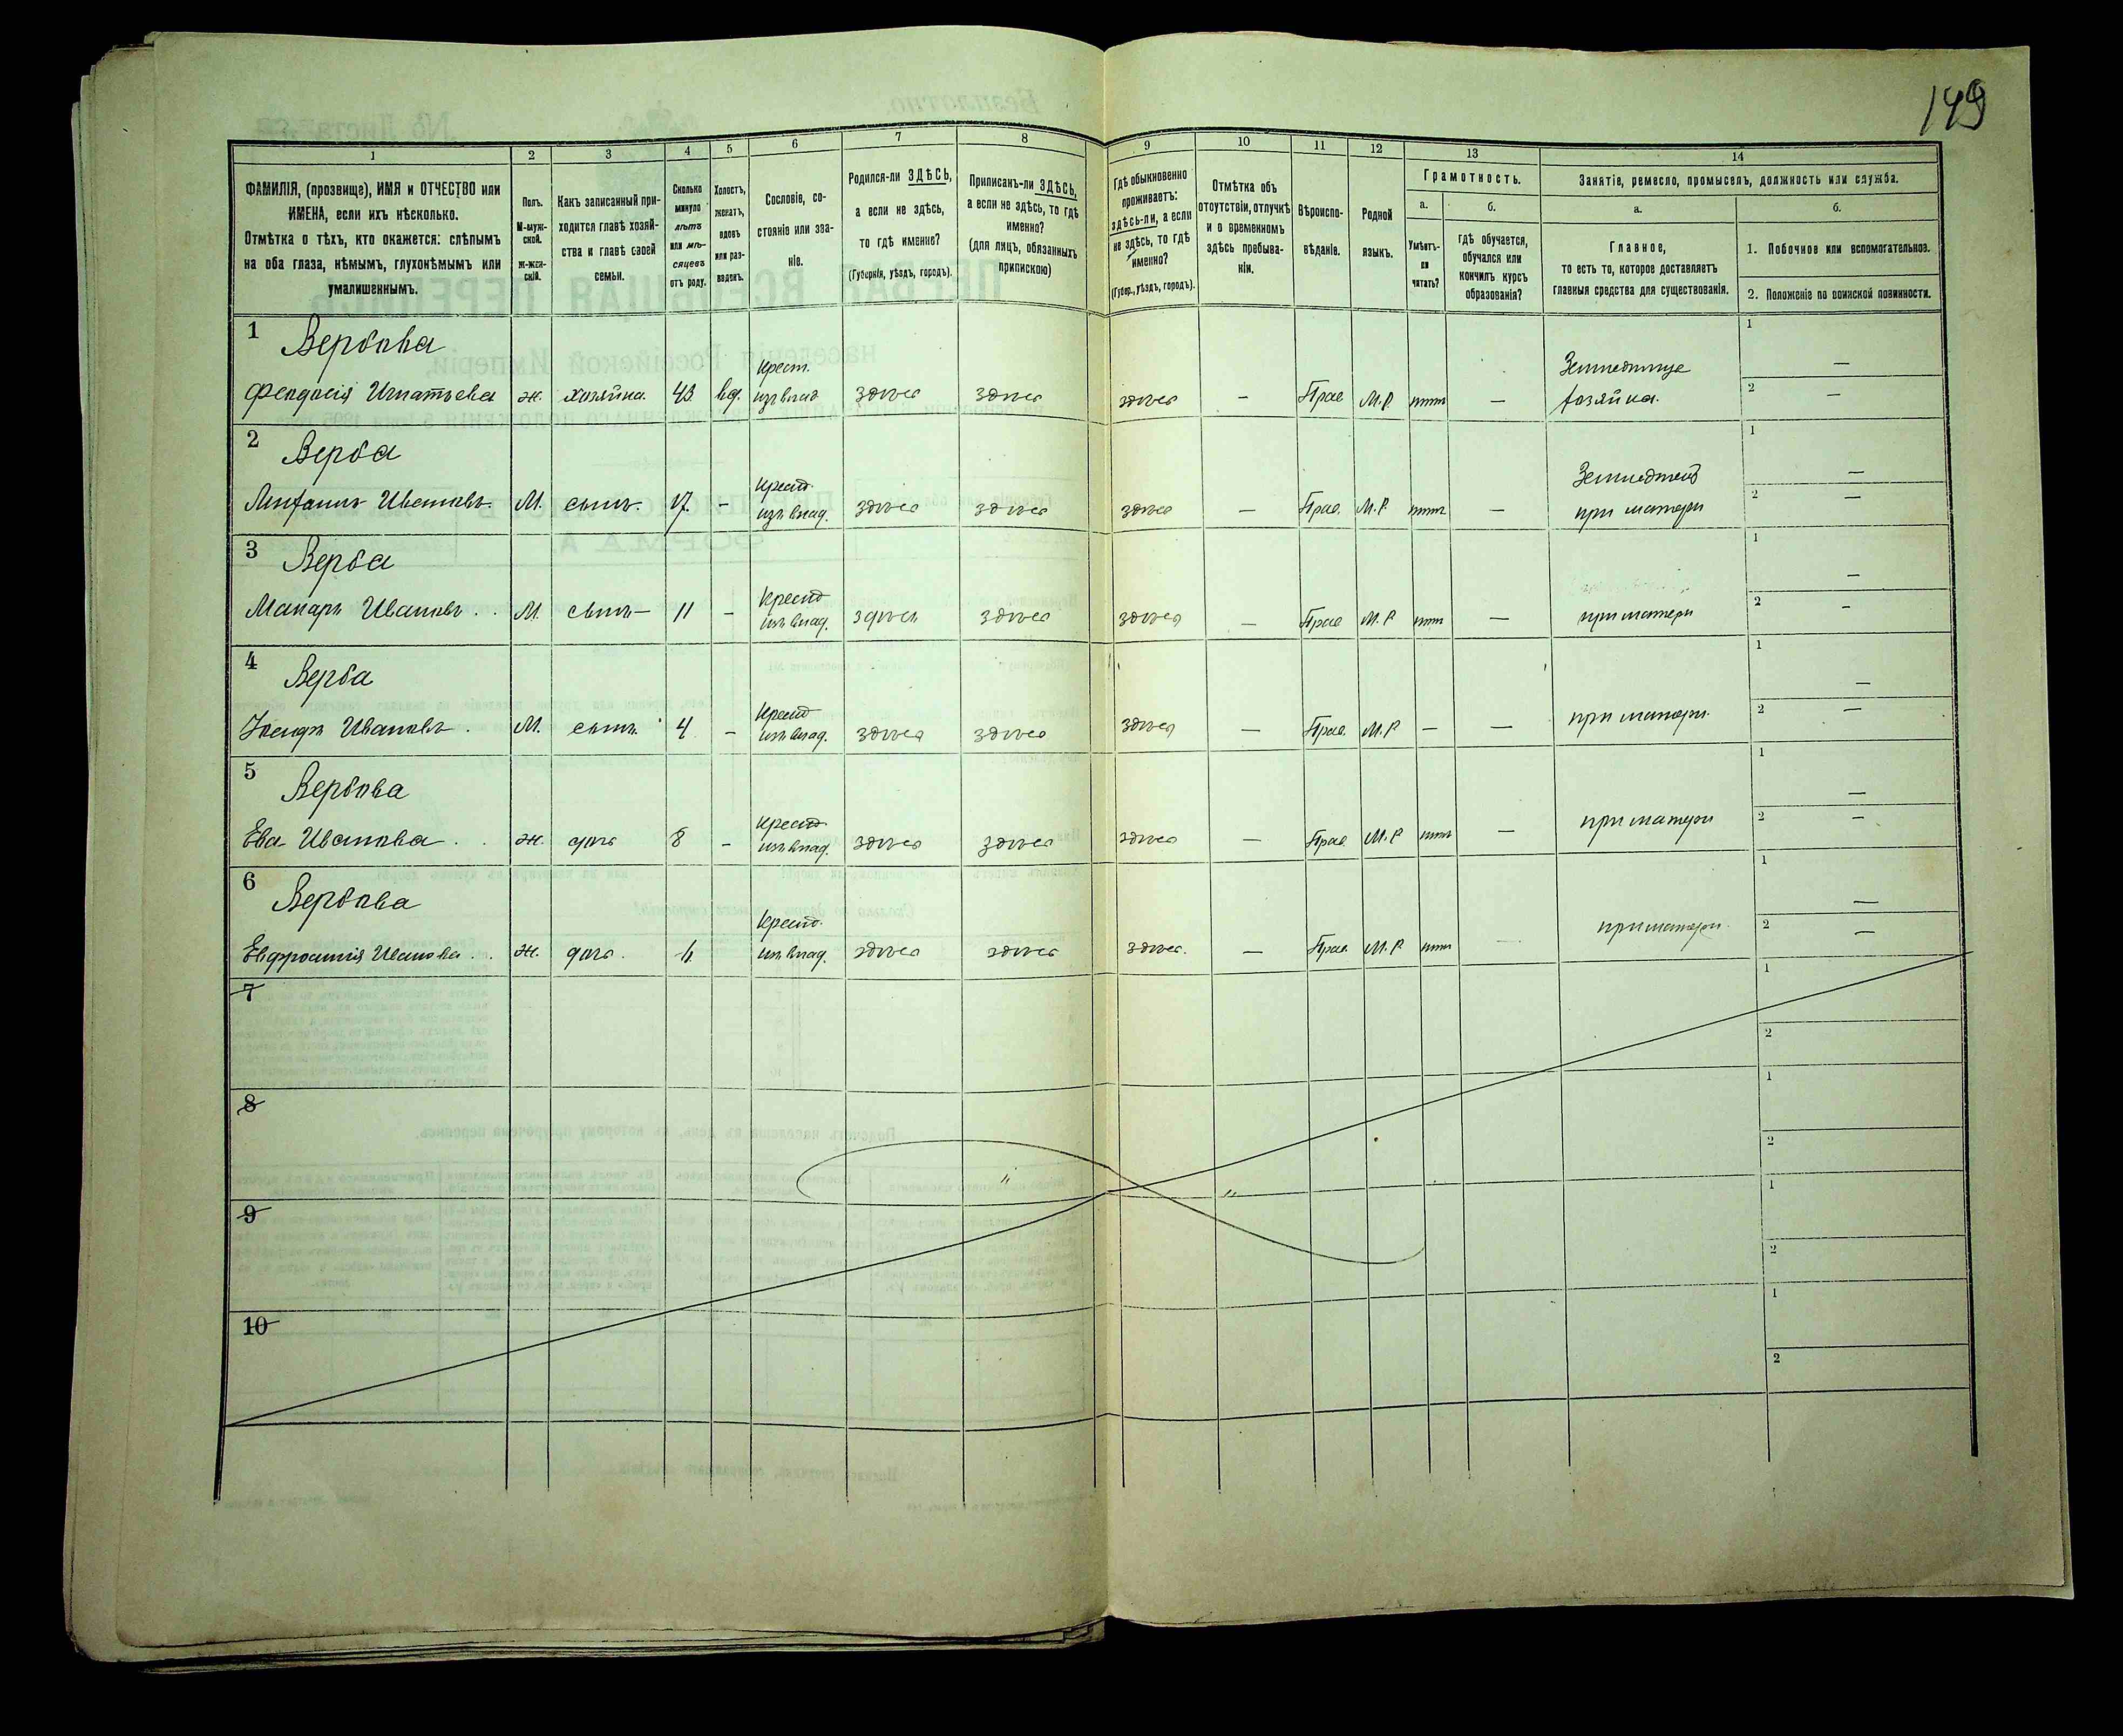 149
1
2
3
4
5
6
7
8
9
10
11
12
13
14
ФАМИЛІЯ, (прозвище), ИМЯ и ОТЧЕСТВО или
ИМЕНА, если ихъ нѣсколько.
Отмѣтка о тѣхъ, кто окажется: слѣпымъ
на оба глаза, нѣмымъ, глухонѣмымъ или
умалишеннымъ.
Полъ.
М-муж-
ской.
ж-жен-
скій.
Какъ записанный при-
ходится главѣ хозяй-
ства и главѣ своей
семьи.
Сколько
минуло
лѣтъ
или мѣ-
сяцевъ
отъ роду.
Холостъ,
женатъ,
вдовъ
или раз-
веденъ.
Сословіе, со-
стояніе или зва-
ніе.
Родился-ли ЗДѢСЬ,
а если не здѣсь,
то гдѣ именно?
(Губернія, уѣздъ, городъ).
Приписанъ-ли ЗДѢСЬ,
а если не здѣсь, то гдѣ
именно?
(для лицъ, обязанныхъ
припискою)
Гдѣ обыкновенно
проживаетъ:
здѣсь-ли, а если
не здѣсь, то гдѣ
именно?
(Губер., уѣздъ, городъ).
Отмѣтка объ
отсутствіи, отлучкѣ
и о временномъ
здѣсь пребыва-
ніи.
Вѣроиспо-
вѣданіе.
Родной
языкъ.
Грамотность.
а.
Умѣетъ-
ли
читать?
б.
гдѣ обучается,
обучался или
кончилъ курсъ
образованія?
Занятіе, ремесло, промыселъ, должность или служба.
а.
Главное,
то есть то, которое доставляетъ
главныя средства для существованія.
б.
1. Побочное или вспомогательное.
2. Положеніе по воинской повинности.
1 Вербова
Крест.
Феодосія Игнатьева ж. хозяйка 43 вд. изъ влад. здѣсь здѣсь здѣсь — Прав. М.Р. нѣтъ —
хозяйка.
1 —
2 —
2 Верба
Крест.
Иванов М. сынъ 17 - изъ влад. здѣсь здѣсь здѣсь — Прав. М.Р. нѣтъ —
при матери
1 —
2 —
3 Верба
Крест.
Макаръ Ивановъ М. сынъ 11 - изъ влад. здѣсь здѣсь здѣсь — Прав. М.Р. нѣтъ — при матери
1 —
2 —
4 Верба
Крест.
Іосифъ Ивановъ М. сынъ 4 - изъ влад. здѣсь здѣсь здѣсь — Прав. М.Р. — — при матери
1 —
2 —
5 Вербова
Крест.
Ева Иванова ж. дочь 8 - изъ влад. здѣсь здѣсь здѣсь — Прав. М.Р. нѣтъ — при матери
1 —
2 —
6 Вербова
Крест.
Евфросинія Иванова ж. дочь изъ влад. здѣсь здѣсь здѣсь — Прав. М.Р. нѣтъ при матери
1 —
2 —
7
1
2
8
1
2
9
1
2
10
1
2